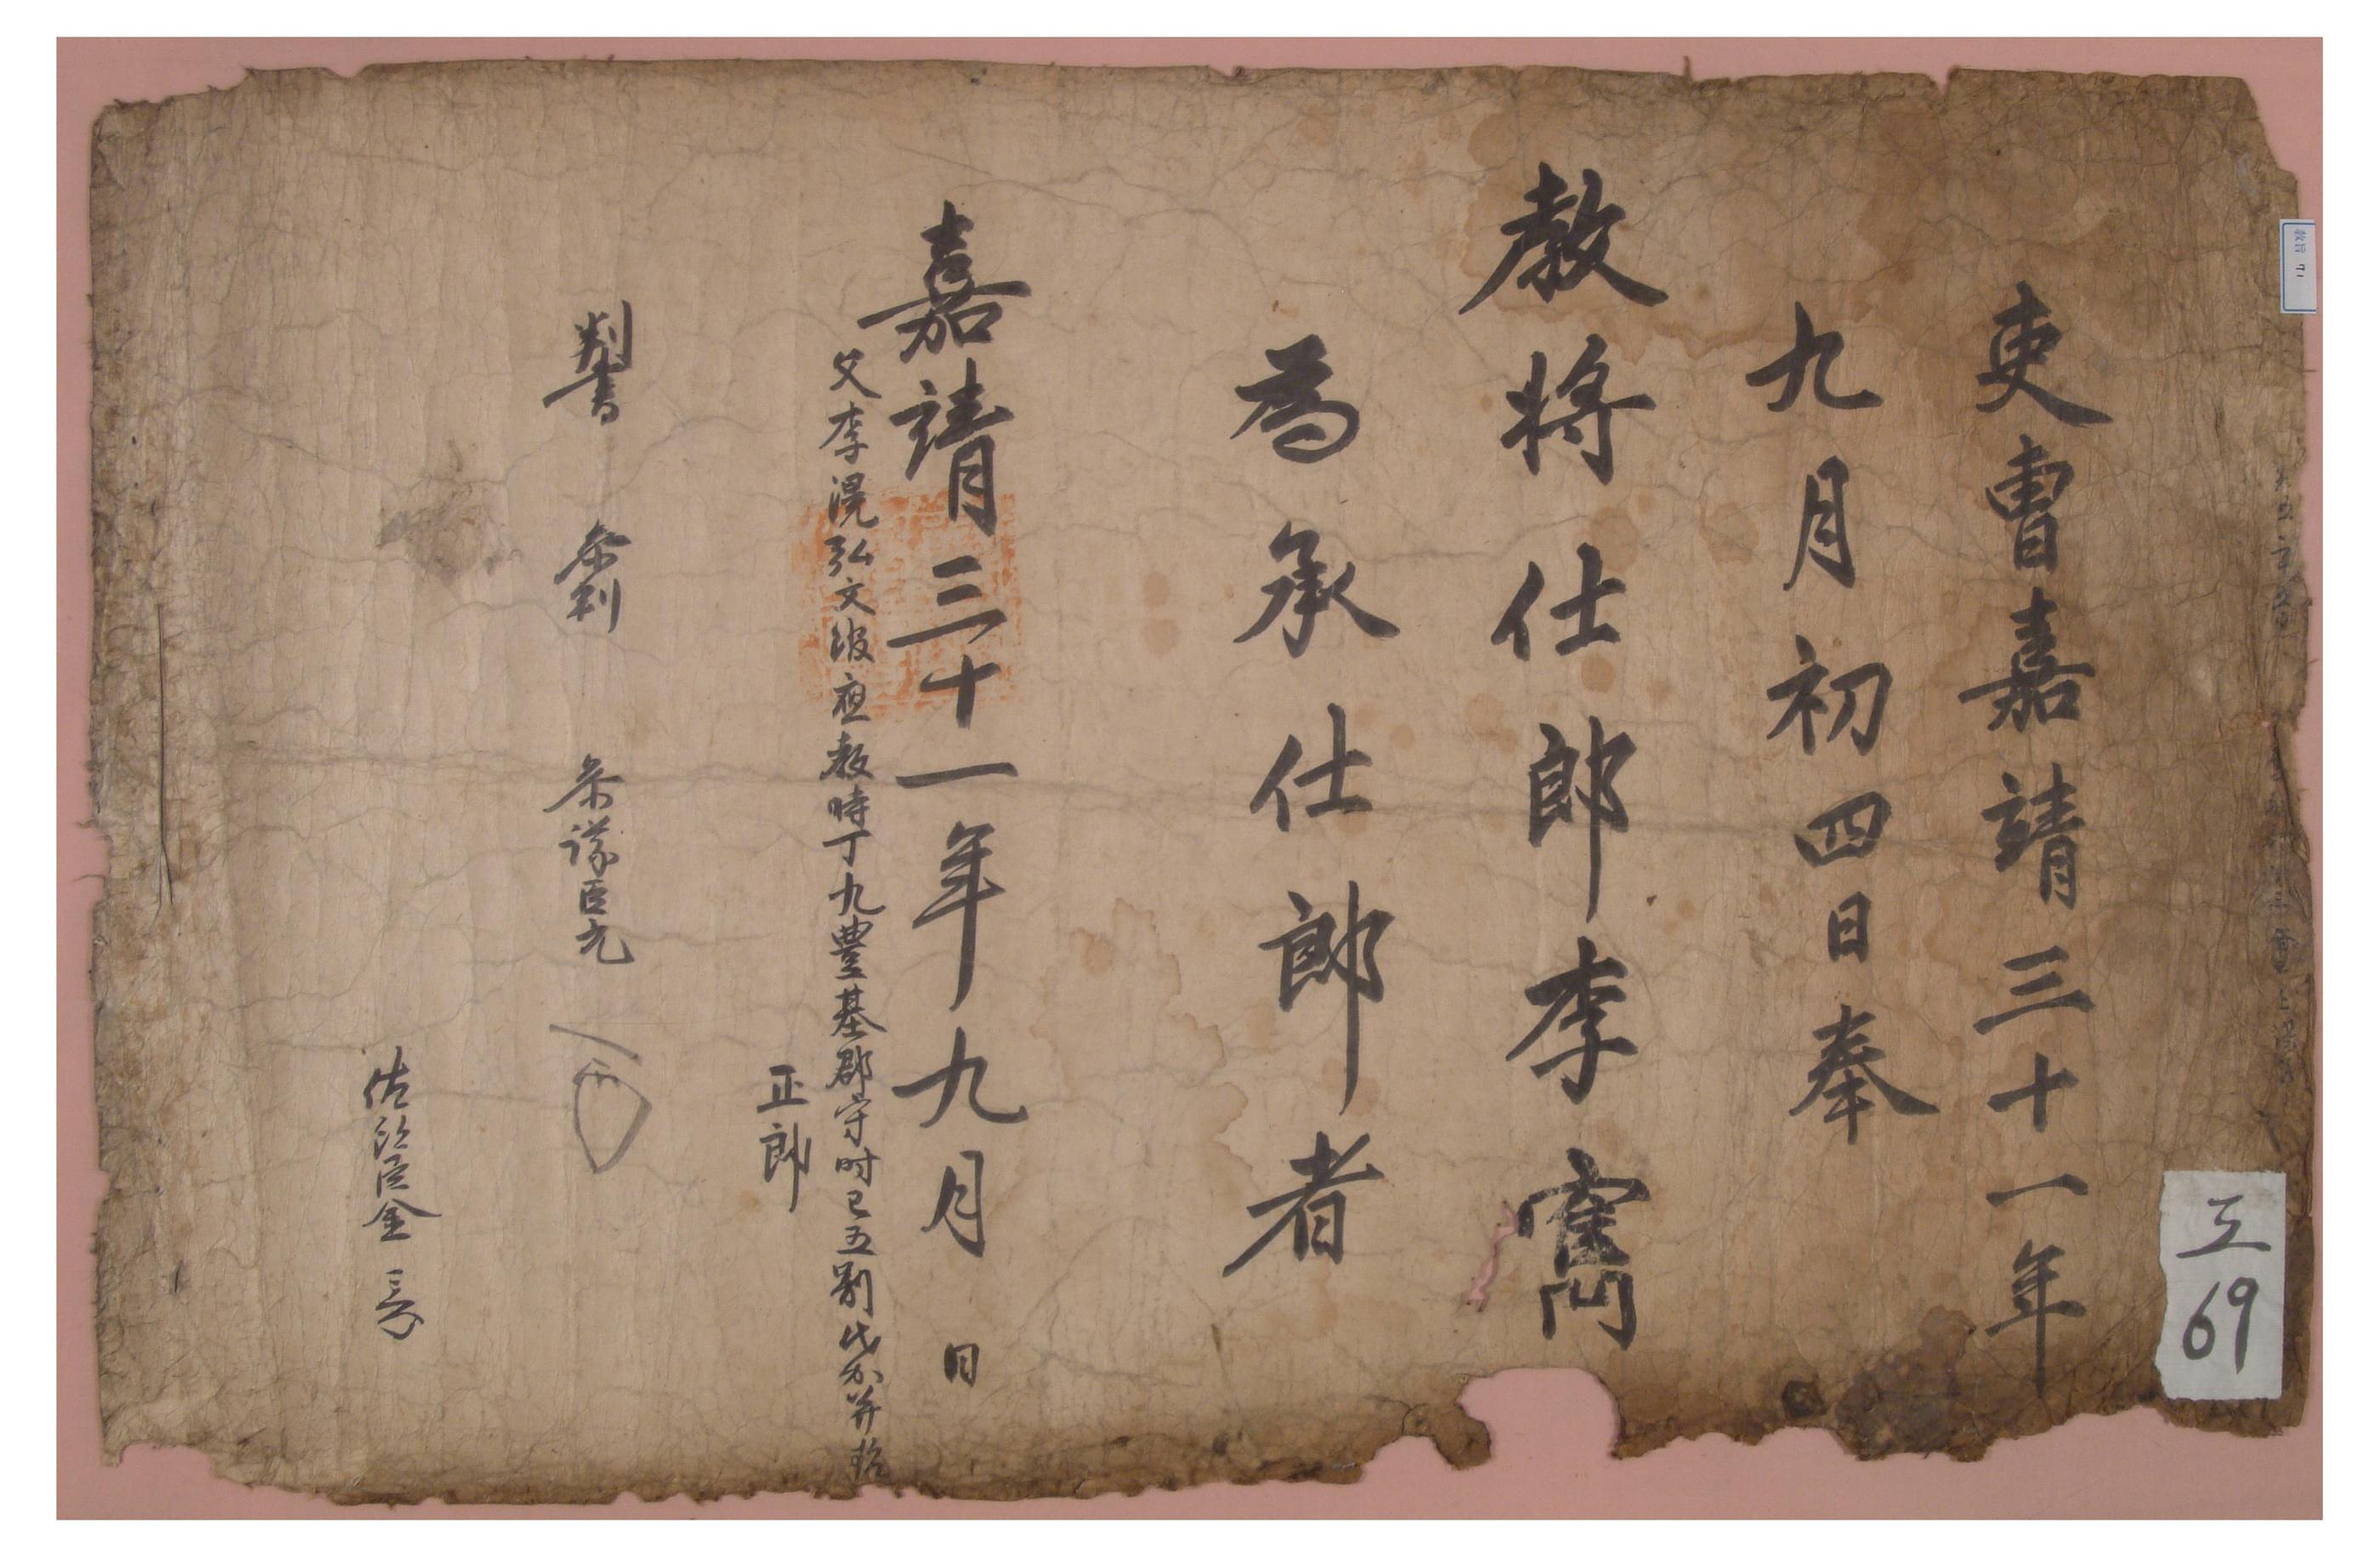 吏曹嘉靖三十一年
九月初四日奉
敎將仕郎李寯
爲承仕郎者
嘉靖三十一年九月 日
父李滉弘文館應教時丁九豊基郡守時已五別代加并超
正郎
判書 參判 參議臣元
佐郎臣金
工
69
教旨